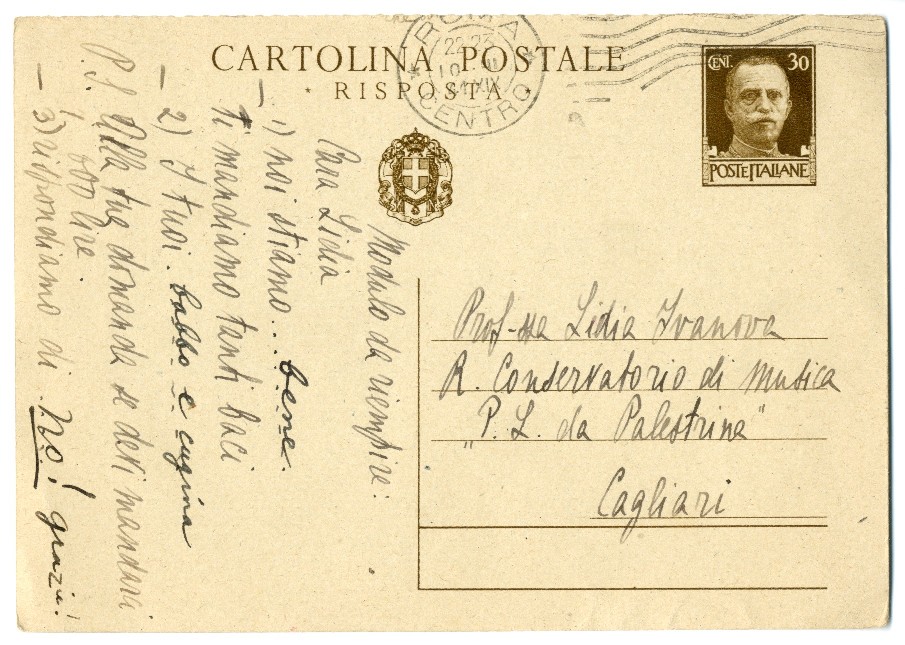 CARTOLINA POSTALE
* RISPOSTA *
ROMA
22-23
10
XIX
* CENTRO *
CENT. 30
POSTE ITALIANE
Prof-ssa Lidia Ivanova
R. Conservatorio di Musica
"P. L. da Palestrina"
Cagliari
Modulo da riempire:
Cara Lidia
— 1) noi stiamo... bene.
ti mandiamo tanti baci
— 2) I tuoi . babbo e cugina
P.S. Alla tua domanda se devi mandare
600 lire
— 3) rispondiamo di . no! grazie!